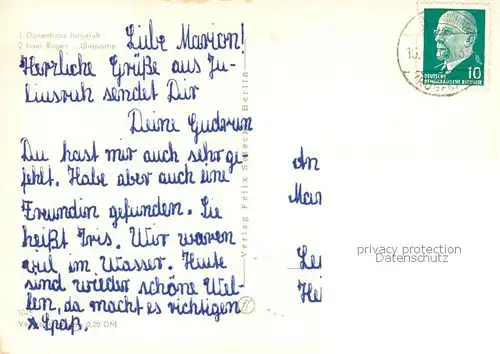 1 Dünenhaus Juliusruh
2 Insel Rügen
Liebe Marion!
Herrliche Grüße aus Ju-
liusruh sendet Dir
Deine Gudrun
Du hast mir auch sehr ge-
fehlt. Habe aber auch eine
Freundin gefunden. Sie
heißt Iris. Wir waren
viel im Wasser. Heute
sind wieder schöne Wel-
len, da macht es richtigen
Spaß.
0,20 DM
Verlag Felix Setecki Berlin
DEUTSCHE
DEMOKRATISCHE REPUBLIK
10
An
Mar
Le
He
privacy protection
Datenschutz